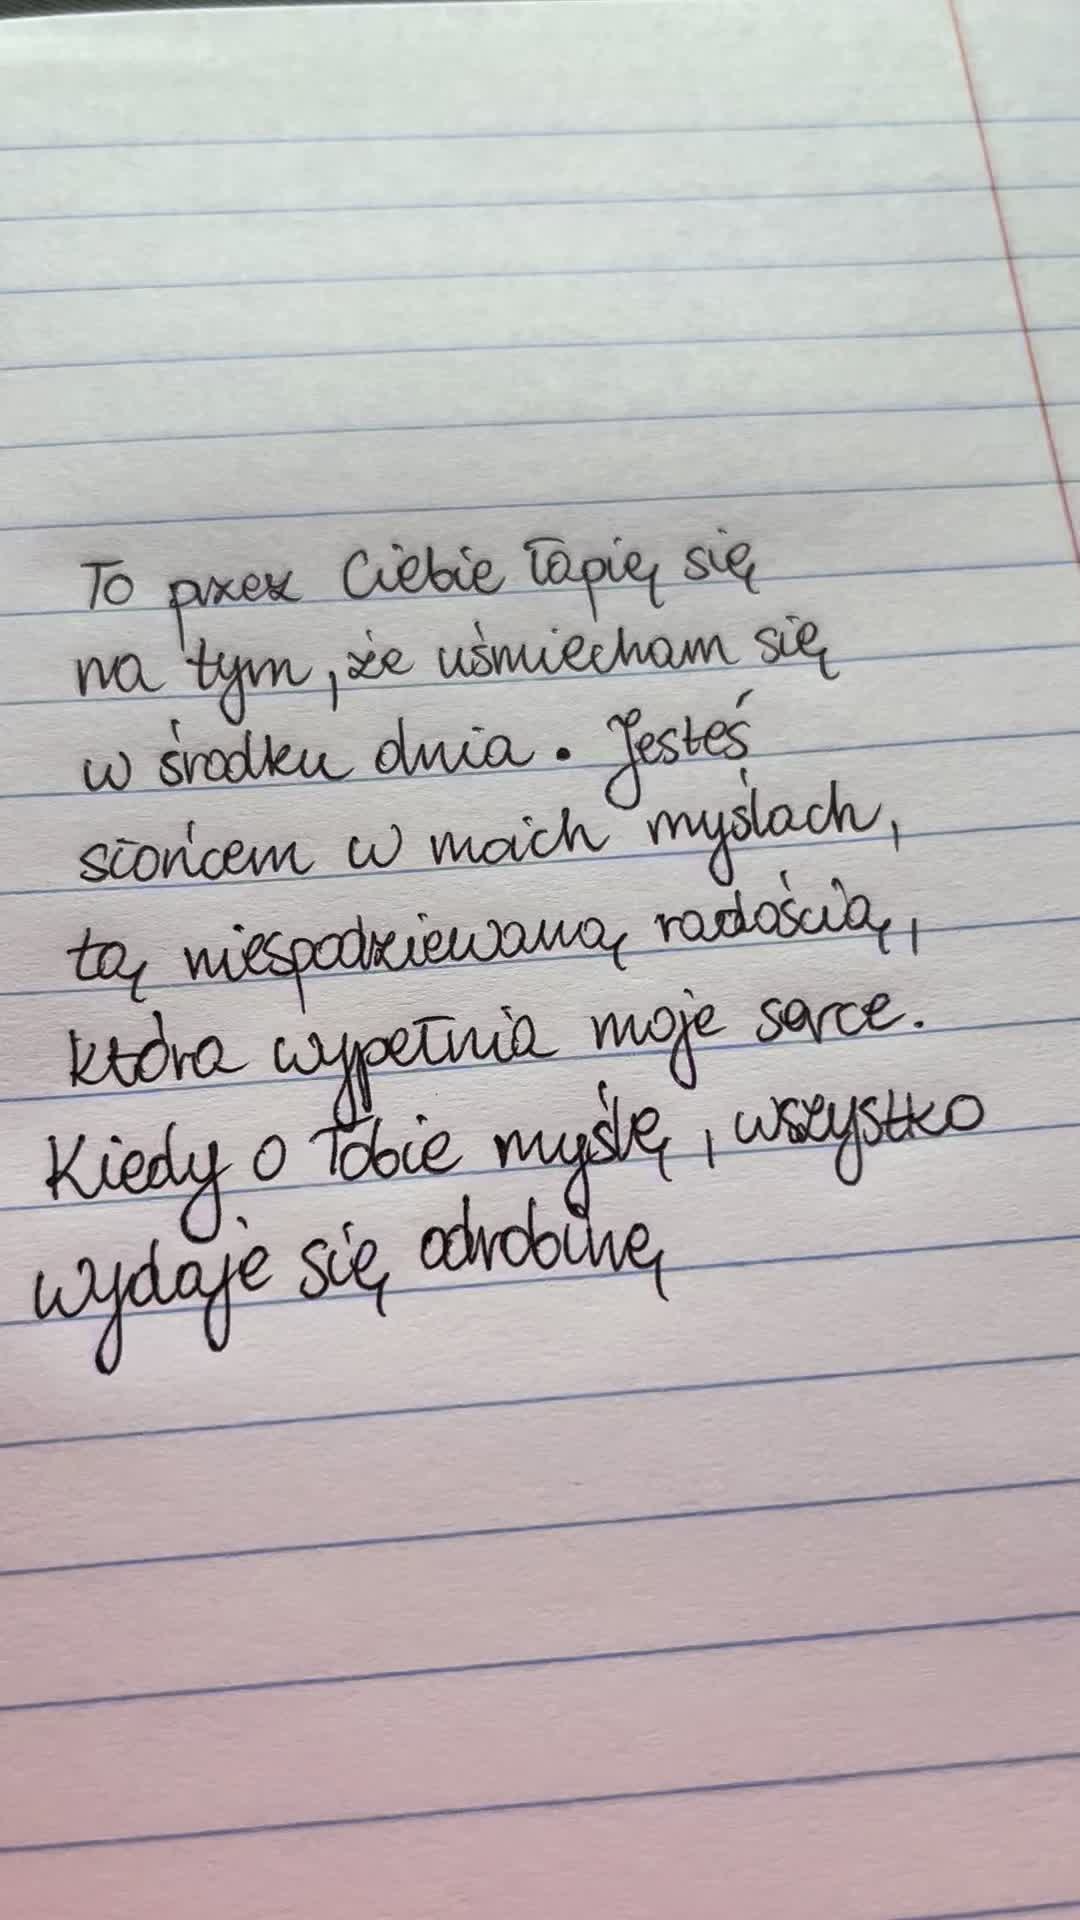 To przez Ciebie łapię się
na tym, że uśmiecham się
w środku dnia. Jesteś
słońcem w moich myślach,
tą niespodziewaną radością,
która wypełnia moje serce.
Kiedy o Tobie myślę, wszystko
wydaje się odrobinę